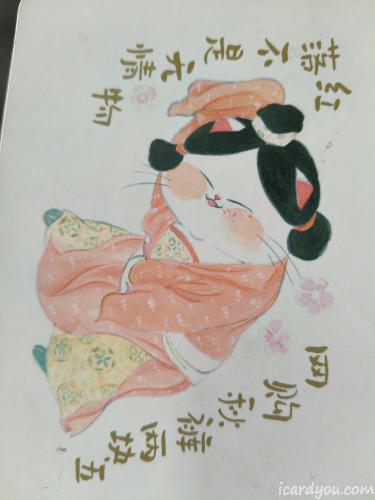 落红不是无情物
网购秋裤两块五